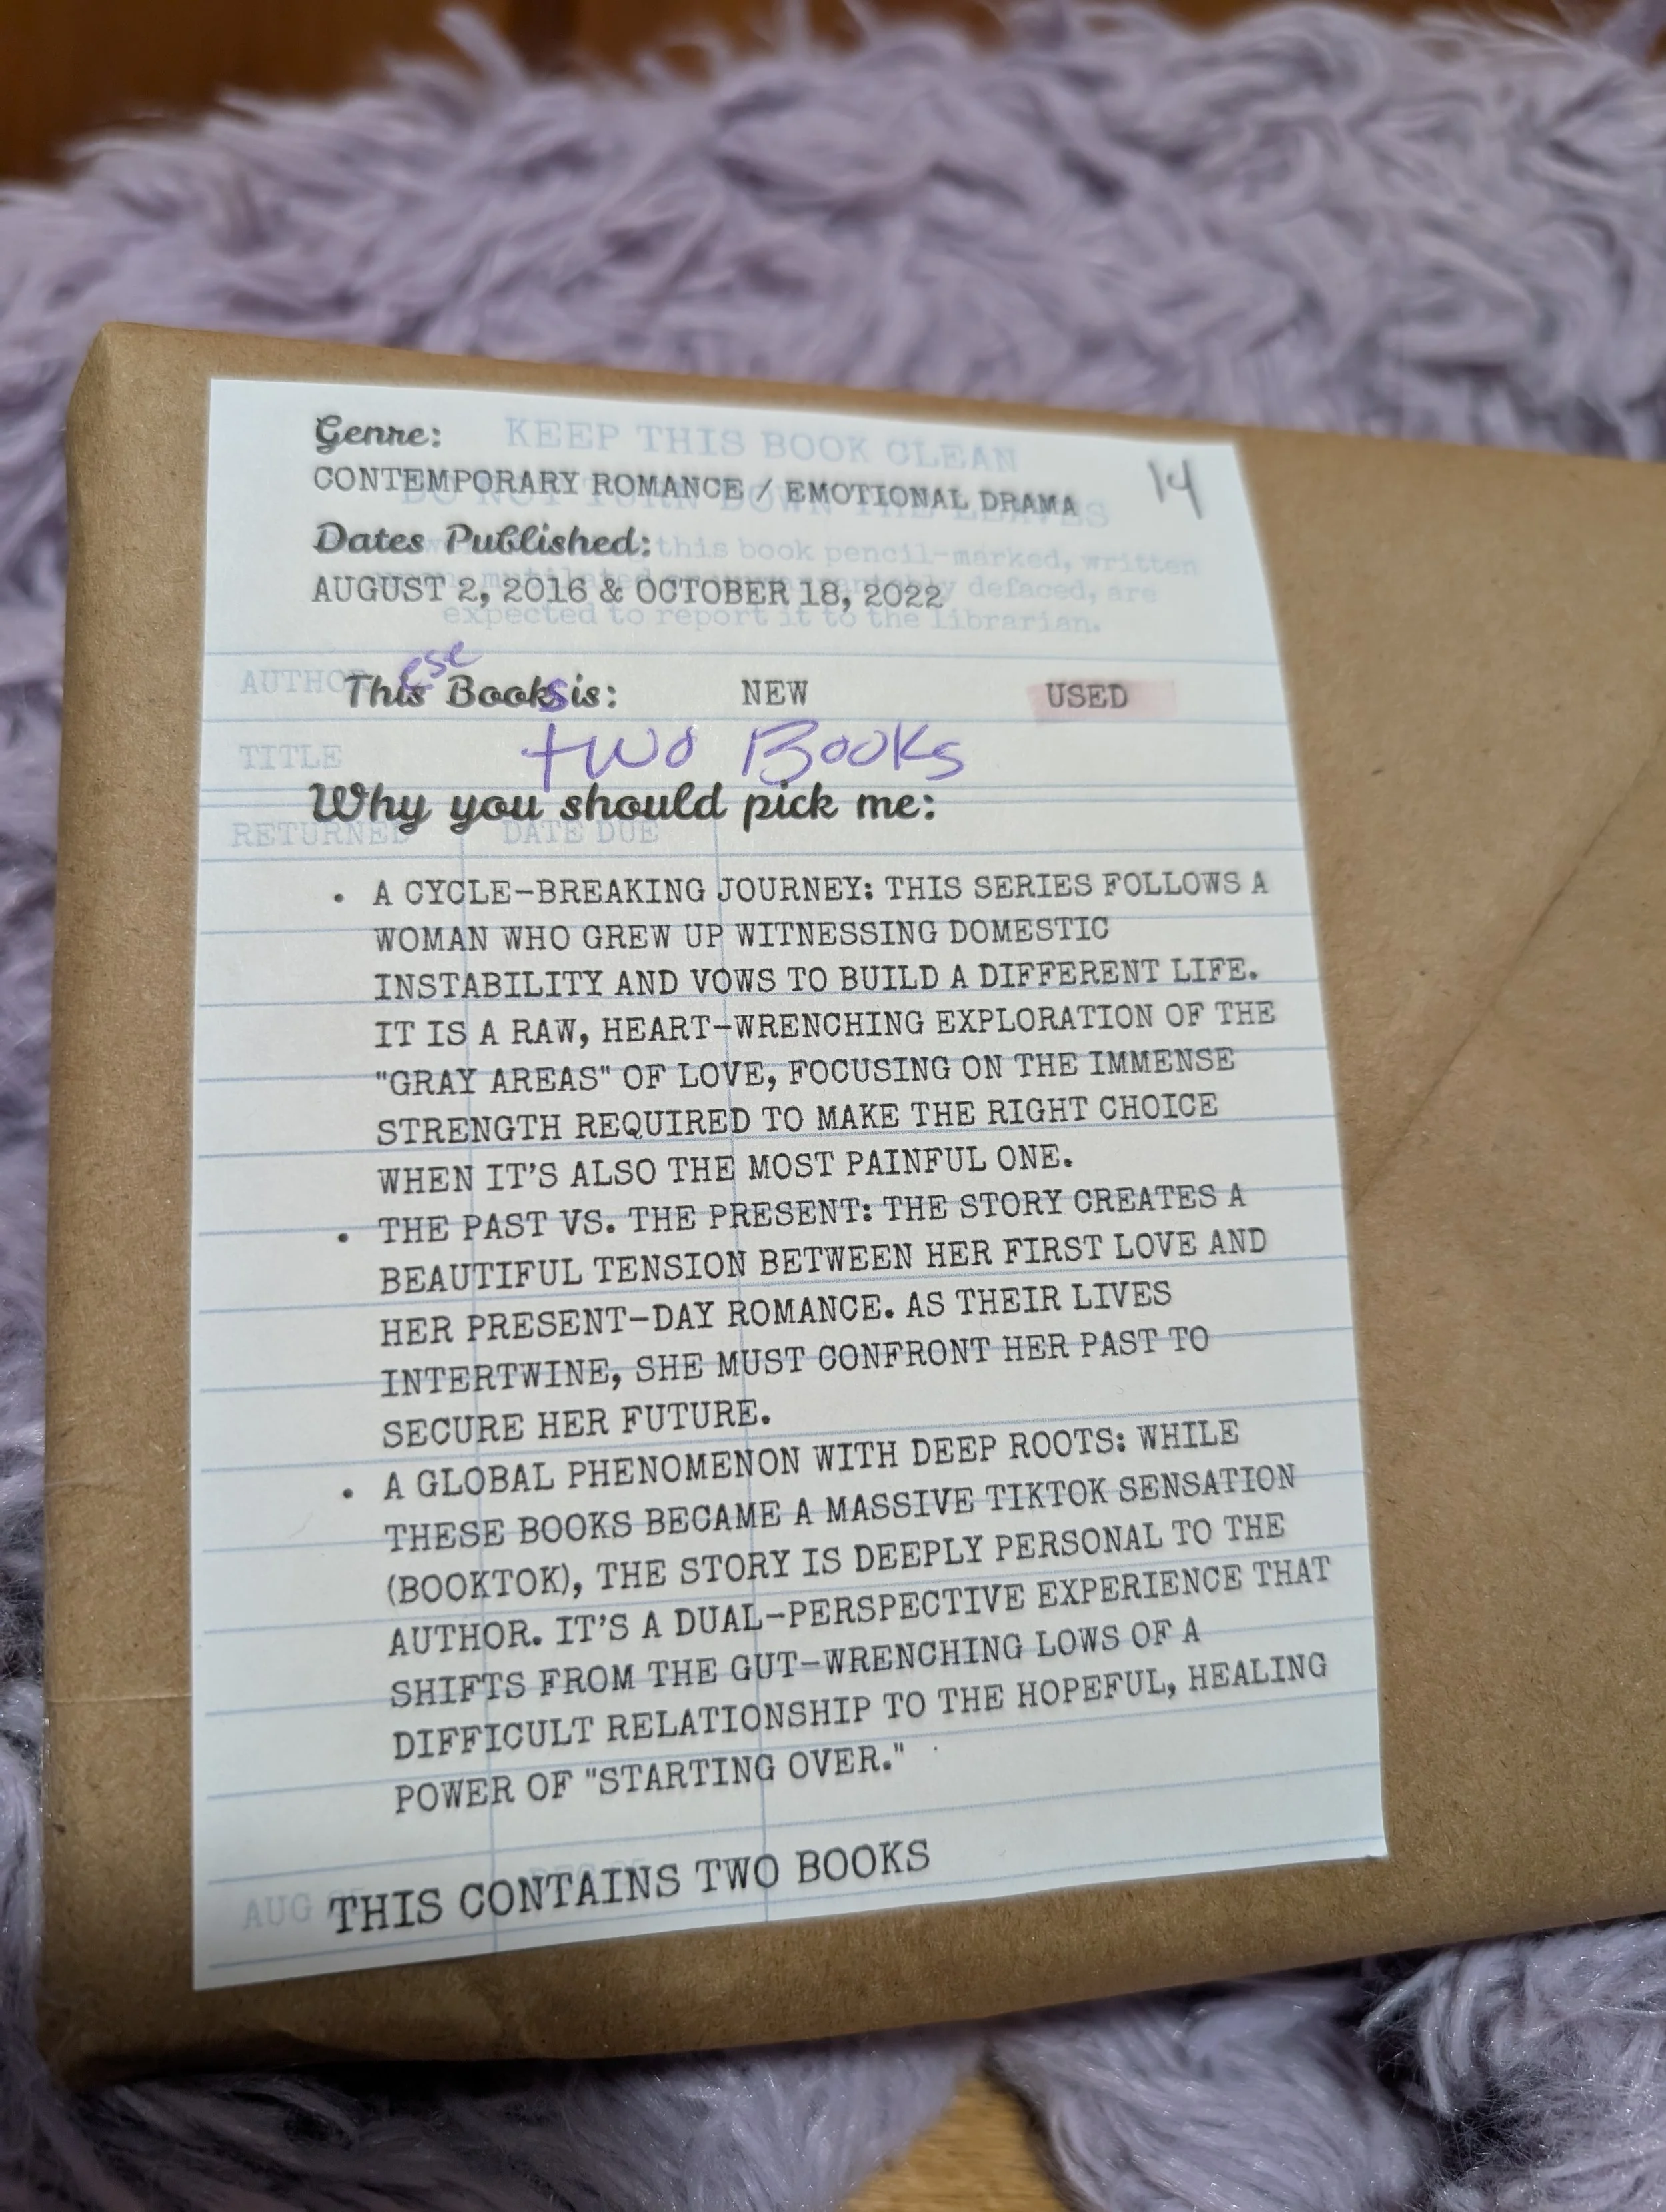 KEEP THIS BOOK CLEAN
Genre:
14
CONTEMPORARY ROMANCE / EMOTIONAL DRAMA
DO NOT TURN DOWN THE LEAVES
Dates Published:
this book pencil-marked, written
AUGUST 2, 2016 & OCTOBER 18, 2022
defaced, are
expected to report it to the librarian.
ese
AUTHOR
This Books is: NEW USED
TITLE
two Books
Why you should pick me:
RETURNED DATE DUE
• A CYCLE-BREAKING JOURNEY: THIS SERIES FOLLOWS A
WOMAN WHO GREW UP WITNESSING DOMESTIC
INSTABILITY AND VOWS TO BUILD A DIFFERENT LIFE.
IT IS A RAW, HEART-WRENCHING EXPLORATION OF THE
"GRAY AREAS" OF LOVE, FOCUSING ON THE IMMENSE
STRENGTH REQUIRED TO MAKE THE RIGHT CHOICE
WHEN IT'S ALSO THE MOST PAINFUL ONE.
• THE PAST VS. THE PRESENT: THE STORY CREATES A
BEAUTIFUL TENSION BETWEEN HER FIRST LOVE AND
HER PRESENT-DAY ROMANCE. AS THEIR LIVES
INTERTWINE, SHE MUST CONFRONT HER PAST TO
SECURE HER FUTURE.
• A GLOBAL PHENOMENON WITH DEEP ROOTS: WHILE
THESE BOOKS BECAME A MASSIVE TIKTOK SENSATION
(BOOKTOK), THE STORY IS DEEPLY PERSONAL TO THE
AUTHOR. IT'S A DUAL-PERSPECTIVE EXPERIENCE THAT
SHIFTS FROM THE GUT-WRENCHING LOWS OF A
DIFFICULT RELATIONSHIP TO THE HOPEFUL, HEALING
POWER OF "STARTING OVER."
AUG
THIS CONTAINS TWO BOOKS